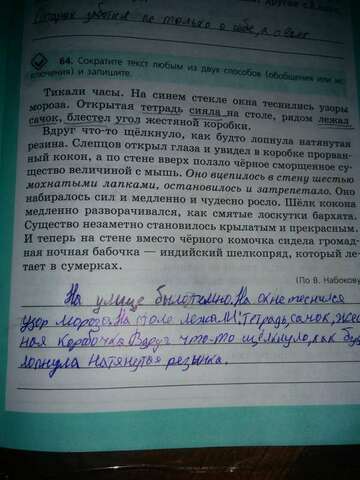 только о себе, а о всех
64. Сократите текст любым из двух способов (обобщения или ис-
ключения) и запишите.
Тикали часы. На синем стекле окна теснились узоры
мороза. Открытая тетрадь сияла на столе, рядом лежал
сачок, блестел угол жестяной коробки.
Вдруг что-то щёлкнуло, как будто лопнула натянутая
резина. Слепцов открыл глаза и увидел в коробке прорван-
ный кокон, а по стене вверх ползло чёрное сморщенное су-
щество величиной с мышь. Оно вцепилось в стену шестью
мохнатыми лапками, остановилось и затрепетало. Оно
набиралось сил и медленно и чудесно росло. Шёлк кокона
медленно разворачивался, как смятые лоскутки бархата.
Существо незаметно становилось крылатым и прекрасным.
И теперь на стене вместо чёрного комочка сидела громад-
ная ночная бабочка — индийский шелкопряд, который ле-
тает в сумерках.
(По В. Набокову
На улице было темно. На окне теснился
узор мороза. На столе лежали: тетрадь, сачок, жес
ная коробочка. Вдруг что-то щёлкнуло, как буд
лопнула натянутая резинка.